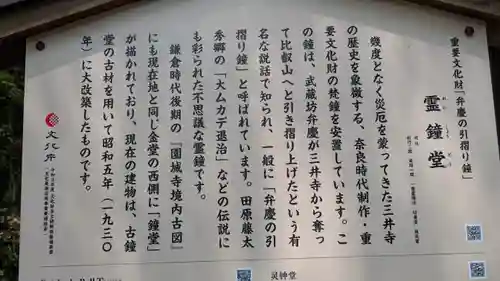 重要文化財「弁慶の引摺り鐘」
霊鐘堂
幾度となく災厄を蒙ってきた三井寺
の歴史を象徴する、奈良時代制作・重
要文化財の梵鐘を安置しています。こ
の鐘は、武蔵坊弁慶が三井寺から奪っ
て比叡山へと引き摺り上げたという有
名な説話で知られ、一般に「弁慶の引
摺り鐘」と呼ばれています。田原藤太
秀郷の「大ムカデ退治」などの伝説に
も彩られた不思議な霊鐘です。
鎌倉時代後期の『園城寺境内古図』
にも現在地と同じ金堂の西側に「鐘堂」
が描かれており、現在の建物は、古鐘
堂の古材を用いて昭和五年（一九三〇
年）に大改築したものです。
文化庁
灵钟堂